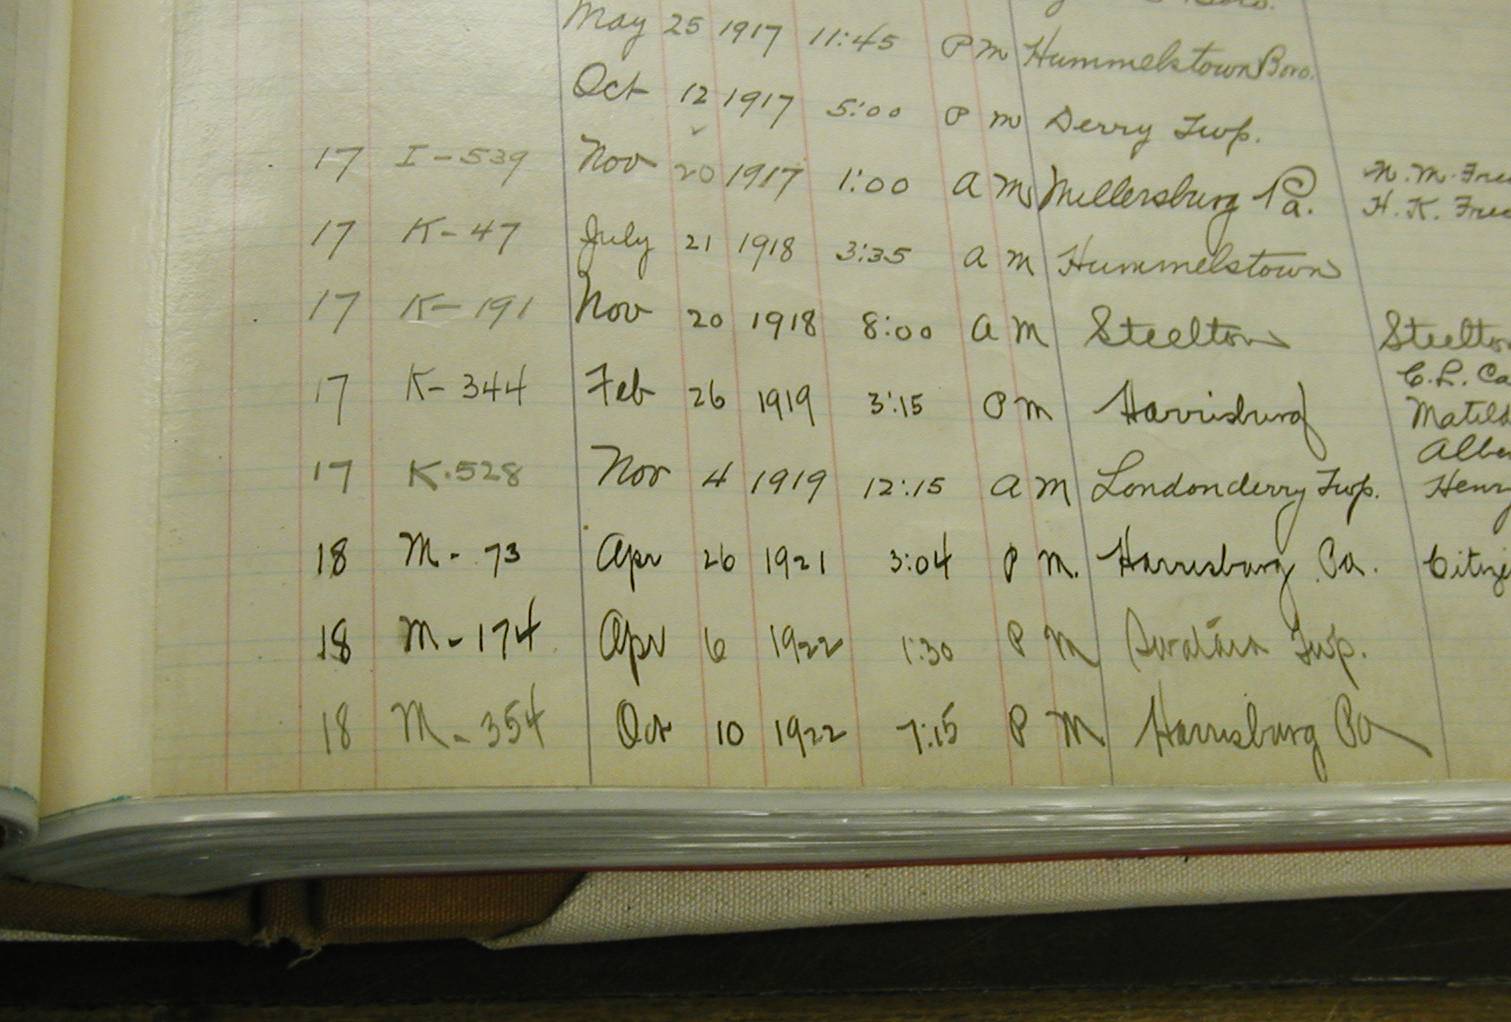 Boro.
May 25 1917 11:45 P M Hummelstown Boro.
Oct 12 1917 5:00 P M Derry Twp.
17 I-539 Nov 20 1917 1:00 A M Millersburg Pa. N. M. Free
H. K. Free
17 K-47 July 21 1918 3:35 A M Hummelstown
17 K-191 Nov 20 1918 8:00 A M Steelton Steelton
17 K-344 Feb 26 1919 3:15 P M Harrisburg C. L. Ca
Matild
17 K.528 Nov 4 1919 12:15 A M Londonderry Twp. Albe
Henry
18 M-73 Apr 26 1921 3:04 P M. Harrisburg Pa. Citize
18 M-174 Apr 6 1922 1:30 P M Swatara Twp.
18 M-354 Oct 10 1922 7:15 P M Harrisburg Pa